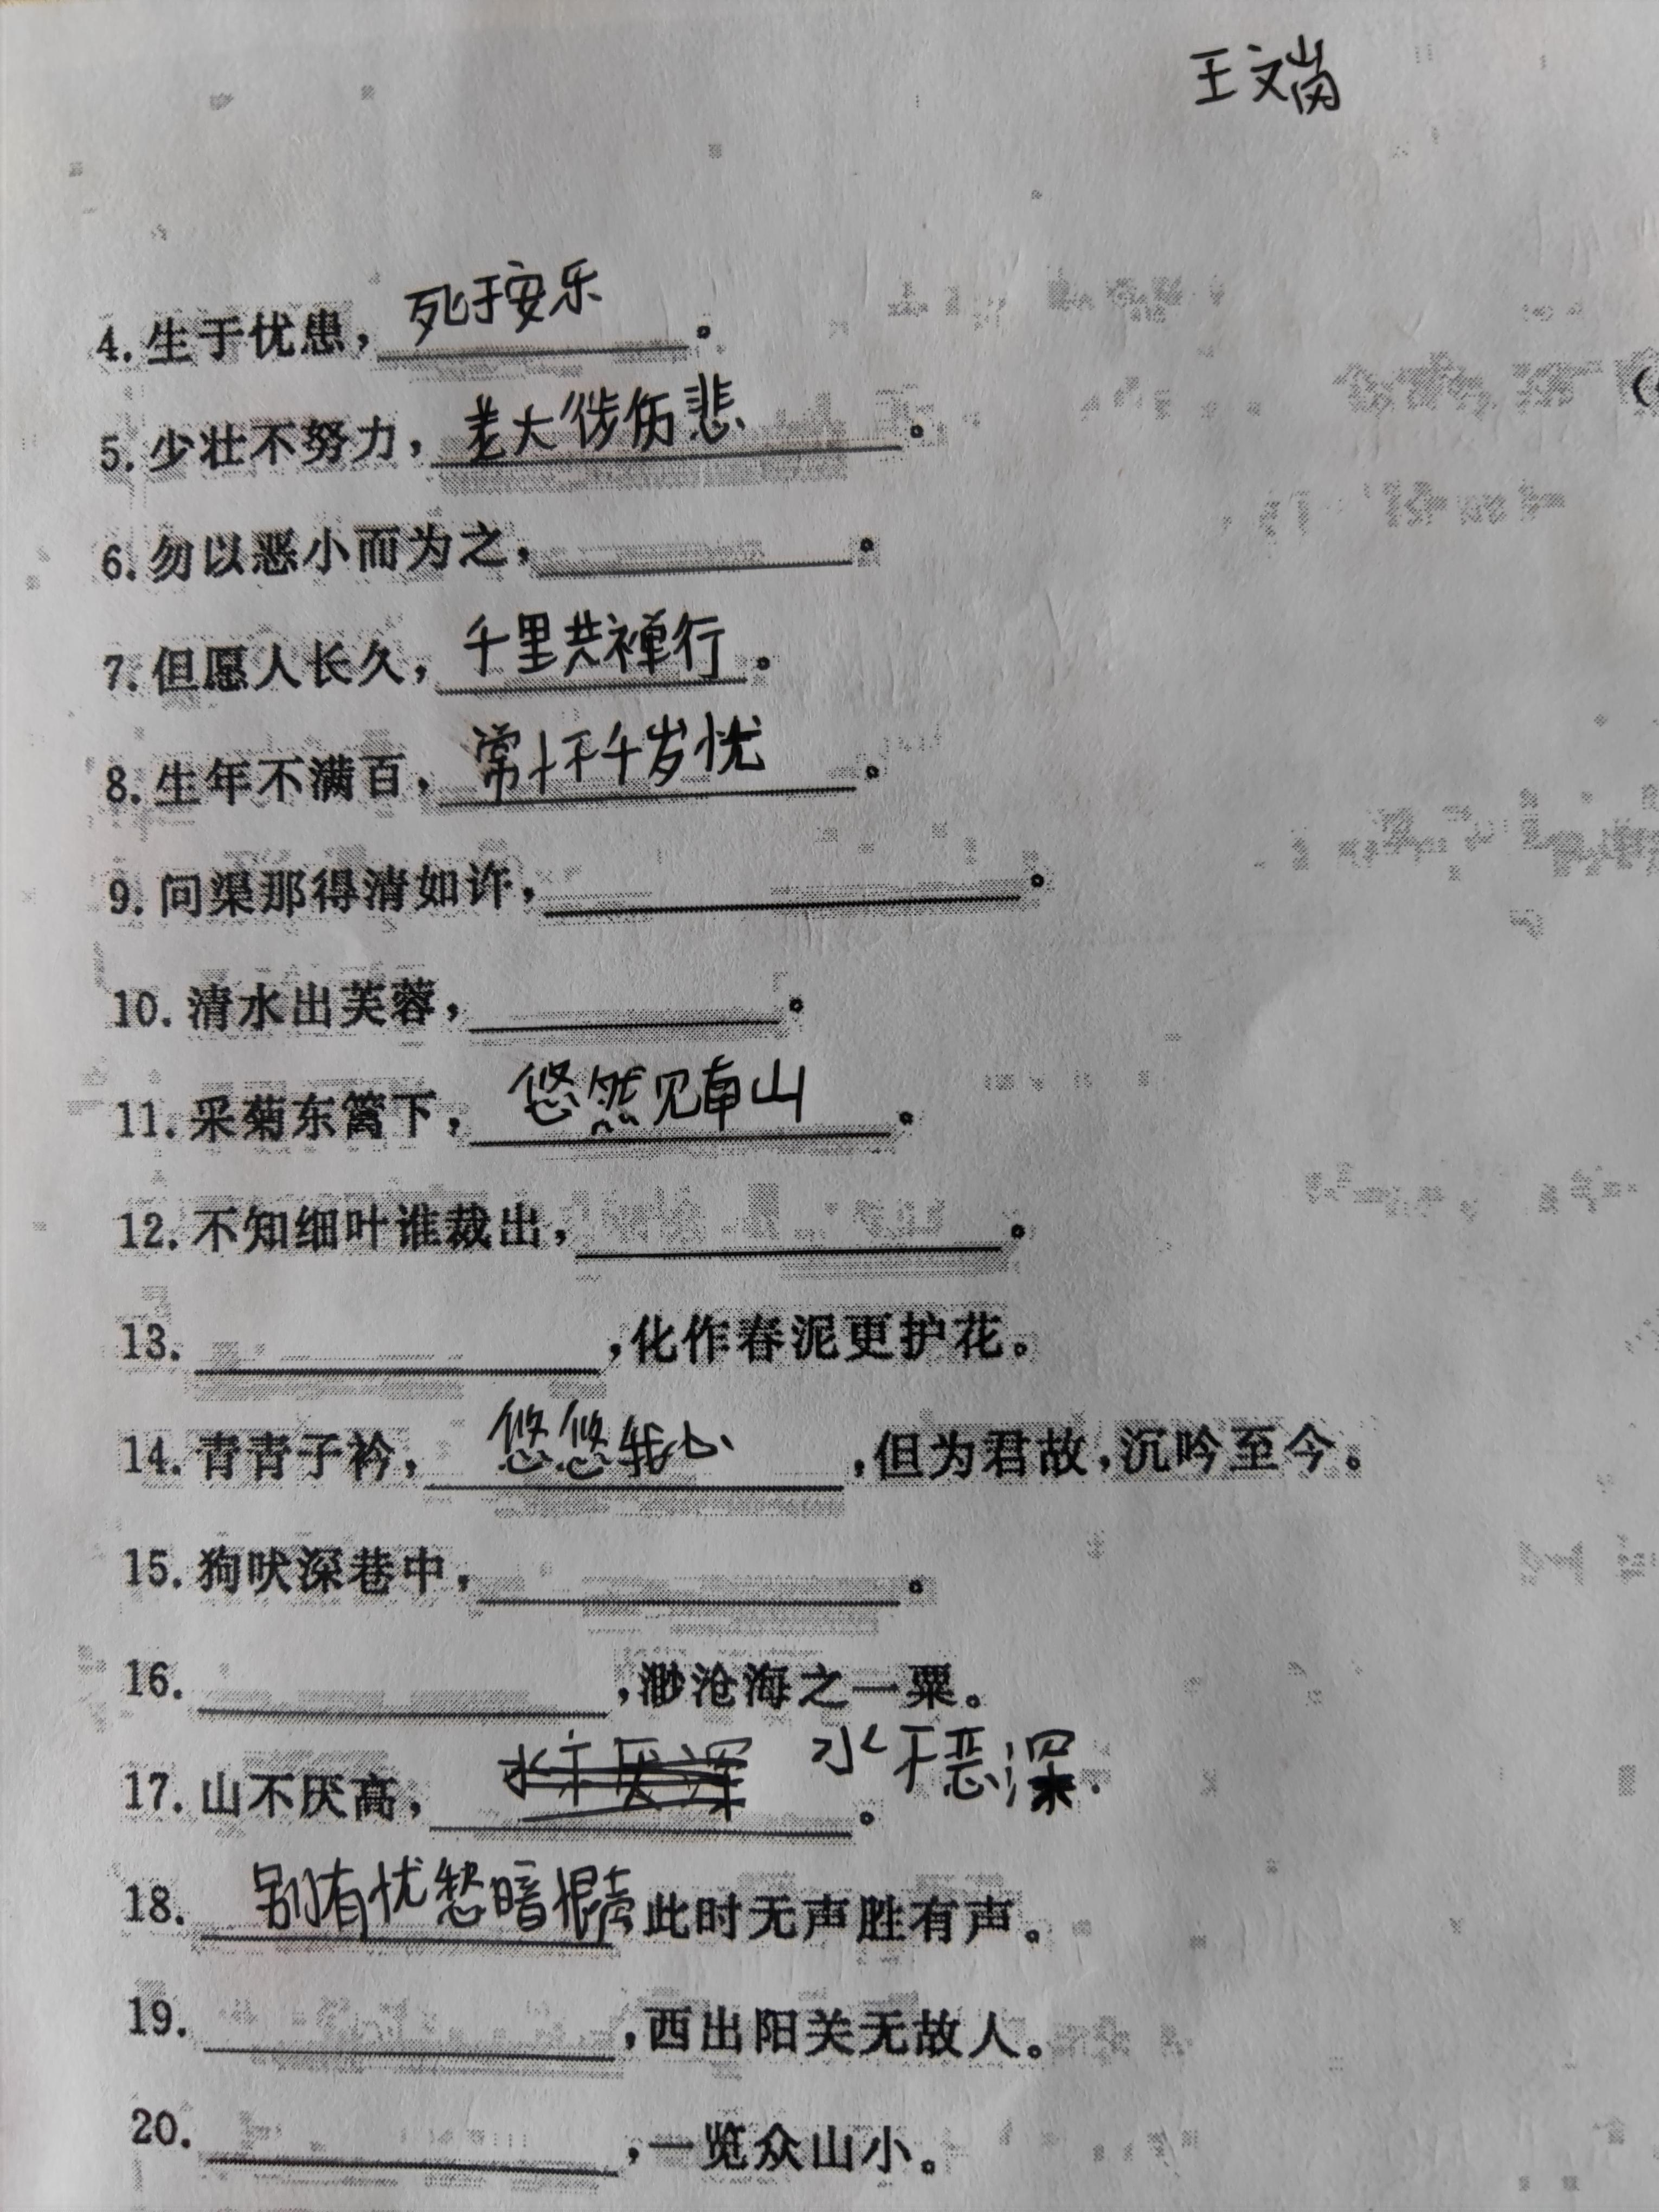 王文岗
4. 生于优患,死于安乐。
5. 少壮不努力,老大伤悲。
6. 勿以恶小而为之,。
7. 但愿人长久,千里共禅行。
8. 生年不满百,常怀千岁忧。
9. 问渠那得清如许,。
10. 清水出芙蓉,。
11. 采菊东篱下,悠然见南山。
12. 不知细叶谁裁出,。
13. ,化作春泥更护花。
14. 青青子衿,悠悠我心,但为君故,沉吟至今。
15. 狗吠深巷中,。
16. ,渺沧海之一粟。
17. 山不厌高,水不厌深 水不恶深。
18. 别有忧愁暗恨 此时无声胜有声。
19. ,西出阳关无故人。
20. ,一览众山小。